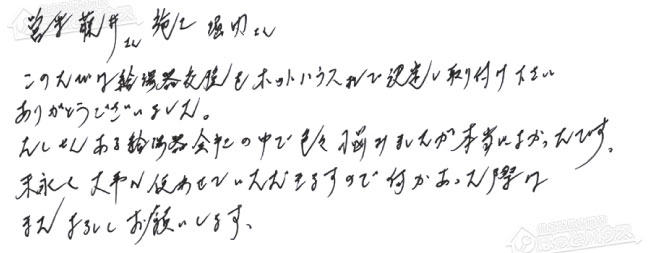 営業 藤井さん 施工 堀内さん
このたびは給湯器交換をホットハウスさんで設定し取り付け下さい
ありがとうございました。
たくさんある給湯器会社の中で色々悩みましたが本当によかったです。
末永く大事に使わせていただきますので何かあった際は
またよろしくお願いします。